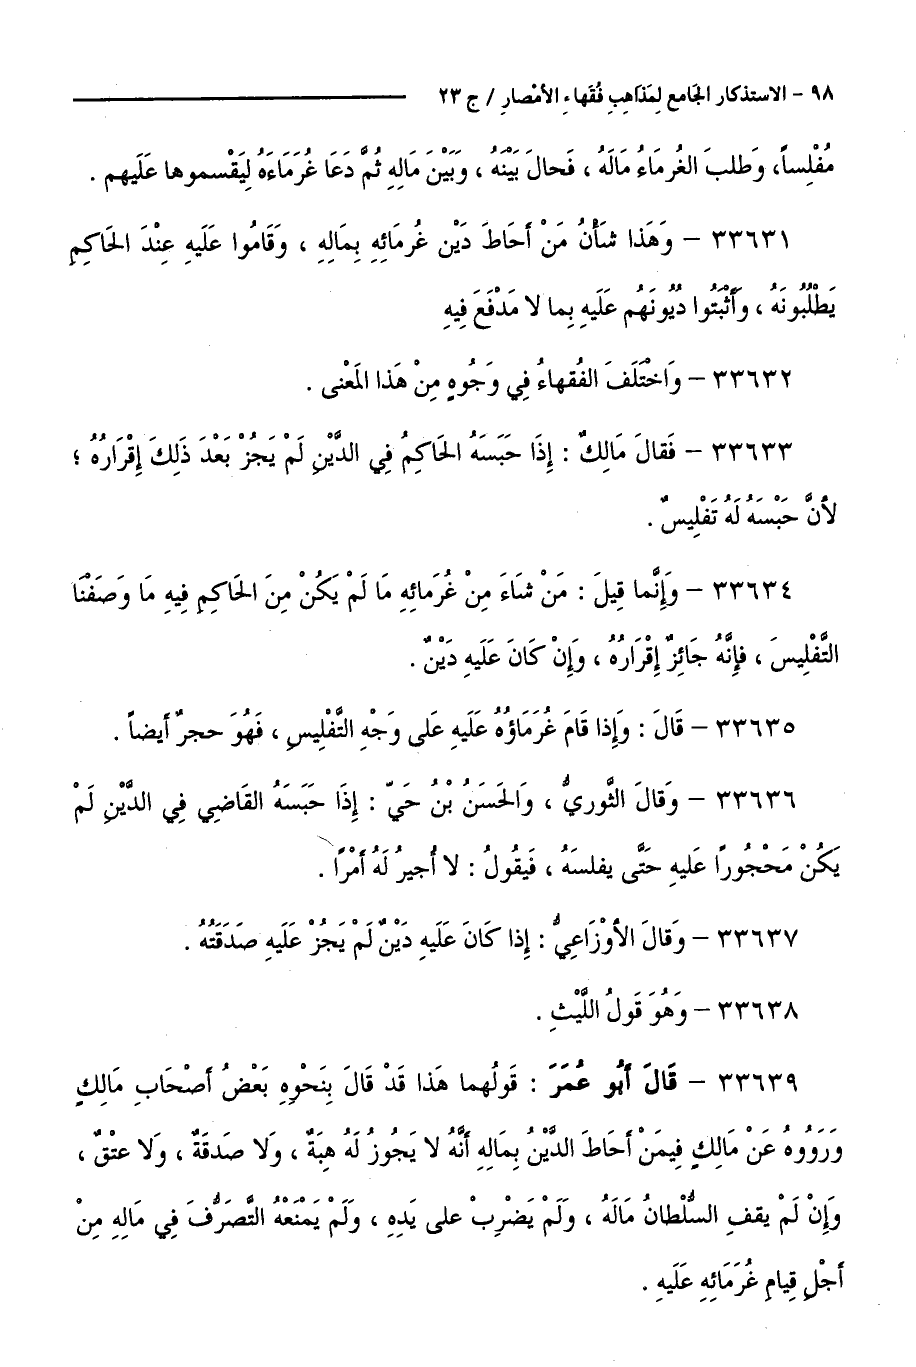 ٩٨ - الاستذكار الجامع لمَذاهِبِ فُقَهاءِ الأمْصارِ / ج ٢٣
مُفْلِساً، وَطلبَ الغُرمَاءُ مَالَهُ ، فَحالَ بَيْنَهُ ، وَبَيْنَ مَالِهِ ثُمَّ دَعَا غُرَمَاءَهُ لِيَقْسموها عَلَيهم .
٣٣٦٣١ - وَهَذا شأنُ مَنْ أحَاطَ دَيْن غُرمَائِهِ بِمَالِهِ ، وَقَامُوا عَلَيهِ عِنْدَ الحَاكِمِ
يَطْلُبُونَهُ ، وَأَثْبَتُوا دُيُونَهُم عَلَيهِ بِما لا مَدْفَعَ فِيهِ
٣٣٦٣٢ - وَاخْتَلَفَ الفُقهاءُ فِي وَجُوهٍ مِنْ هَذا المَعْنى .
٣٣٦٣٣ - فَقالَ مَالِكٌ : إِذَا حَبَسَهُ الحَاكِمُ فِي الدَّيْنِ لَمْ يَجُزْ بَعْدَ ذَلِكَ إِقْرَارُهُ ؛
لأنَّ حَبْسَهُ لَهُ تَفْلِيسٌ .
٣٣٦٣٤ - وَإِنَّما قِيلَ : مَنْ شَاءَ مِنْ غُرَمَائِهِ مَا لَمْ يَكُنْ مِنَ الحَاكِمِ فِيهِ مَا وَصَفْنَا
التَّفْلِيسَ ، فإِنَّهُ جَائِزٌ إِقْرَارُهُ ، وَإِنْ كَانَ عَلَيهِ دَيْنٌ .
٣٣٦٣٥ - قَالَ : وَإِذا قَامَ غُرَمَاؤُهُ عَلَيهِ عَلى وَجْهِ التَّفْلِيسِ ، فَهُوَ حجرٌ أيضاً .
٣٣٦٣٦ - وَقَالَ الثَّوريُّ ، وَالحَسَنُ بْنُ حَيّ : إِذَا حَبَسَهُ القَاضِي فِي الدَّيْنِ لَمْ
يَكُنْ مَحْجُورًا عَليهِ حَتَّى يفلسَهُ ، فَيقُولُ : لا أُجيرُ لَهُ أمْرًا .
٣٣٦٣٧ - وَقالَ الأوْزَاعِيُّ : إِذا كَانَ عَلَيهِ دَيْنٌ لَمْ يَجُزْ عَلَيهِ صَدَقَتُهُ .
٣٣٦٣٨ - وَهُوَ قَولُ اللَّيْثِ .
٣٣٦٣٩ - قَالَ أَبُو عُمَرَ : قَولُهما هَذا قَدْ قَالَ بِنَحْوِهِ بَعْضُ أصْحَابِ مَالِكٍ
وَرَوُوهُ عَنْ مَالِكٍ فِيمَنْ أحَاطَ الدَّيْنُ بِمَالِهِ أنَّهُ لا يَجُوزُ لَهُ هِبَةٌ ، وَلا صَدَقَةٌ ، وَلا عتْقٌ ،
وَإِنْ لَمْ يقفِ السُّلْطانُ مَالَهُ ، وَلَمْ يَضْرِبْ على يَدِهِ ، وَلَمْ يمْنَعْهُ التَّصَرُّفَ فِي مَالِهِ مِنْ
أجْلِ قِيامِ غُرَمَائِهِ عَلَيهِ .